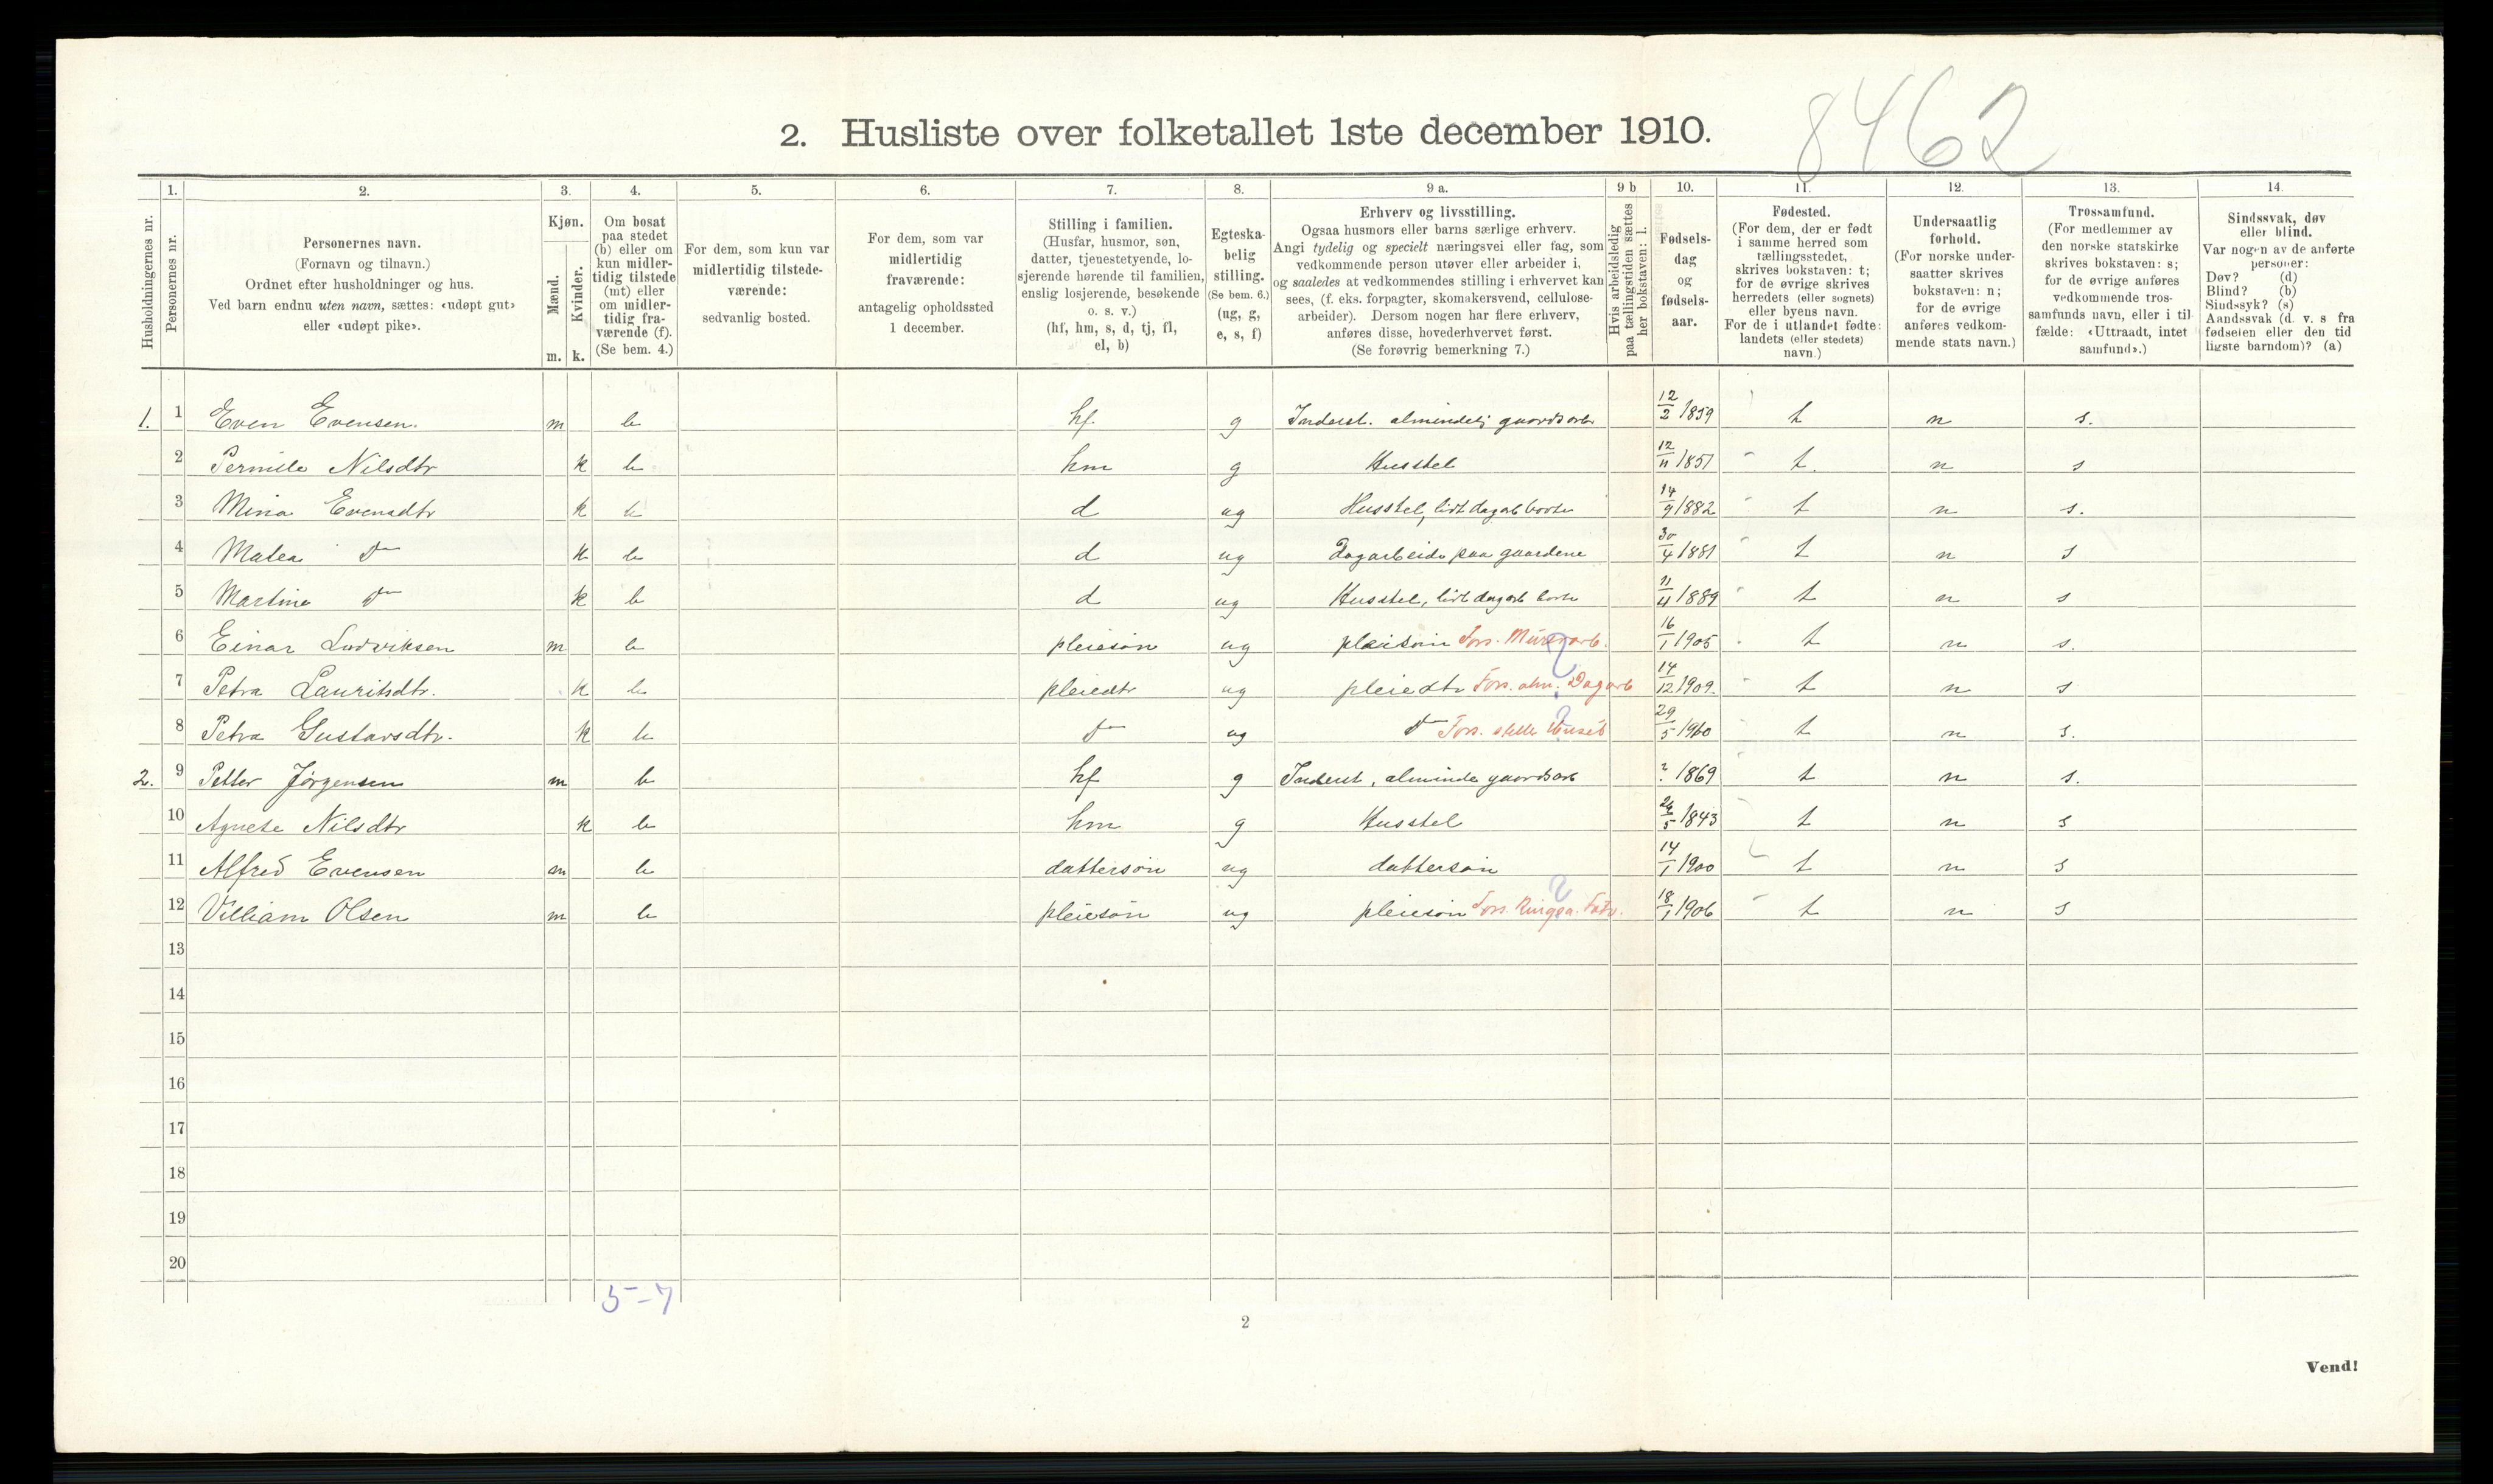 8462
2. Husliste over folketallet 1ste december 1910.
Husholdningernes nr.
1. Personernes nr.
2. Personernes navn.
(Fornavn og tilnavn.)
Ordnet efter husholdninger og hus.
Ved barn endnu uten navn, sættes: «udøpt gut»
eller «udøpt pike».
3. Kjøn.
Mænd. m.
Kvinder. k.
4. Om bosat
paa stedet
(b) eller om
kun midler-
tidig tilstede
(mt) eller
om midler-
tidig fra-
værende (f).
(Se bem. 4.)
5. For dem, som kun var
midlertidig tilstede-
værende:
sedvanlig bosted.
6. For dem, som var
midlertidig
fraværende:
antagelig opholdssted
1 december.
7. Stilling i familien.
(Husfar, husmor, søn,
datter, tjenestetyende, lo-
sjerende hørende til familien,
enslig losjerende, besøkende
o. s. v.)
(hf, hm, s, d, tj, fl,
el, b)
8. Egteska-
belig
stilling.
(Se bem. 6.)
(ug, g,
e, s, f)
9 a. Erhverv og livsstilling.
Ogsaa husmors eller barns særlige erhverv.
Angi tydelig og specielt næringsvei eller fag, som
vedkommende person utøver eller arbeider i,
og saaledes at vedkommendes stilling i erhvervet kan
sees, (f. eks. forpagter, skomakersvend, cellulose-
arbeider). Dersom nogen har flere erhverv,
anføres disse, hovederhvervet først.
(Se forøvrig bemerkning 7.)
9 b Hvis arbeidsledig
paa tællingstiden sættes
her bokstaven: l.
10. Fødsels-
dag
og
fødsels-
aar.
11. Fødested.
(For dem, der er født
i samme herred som
tællingsstedet,
skrives bokstaven: t;
for de øvrige skrives
herredets (eller sognets)
eller byens navn.
For de i utlandet fødte:
landets (eller stedets)
navn.)
12. Undersaatlig
forhold.
(For norske under-
saatter skrives
bokstaven: n;
for de øvrige
anføres vedkom-
mende stats navn.)
13. Trossamfund.
(For medlemmer av
den norske statskirke
skrives bokstaven: s;
for de øvrige anføres
vedkommende tros-
samfunds navn, eller i til-
fælde: «Uttraadt, intet
samfund».)
14. Sindssvak, døv
eller blind.
Var nogen av de anførte
personer:
Døv? (d)
Blind? (b)
Sindssyk? (s)
Aandssvak (d. v. s. fra
fødselen eller den tid
ligste barndom)? (a)
1. 1 Even Evensen. m b hf. g Inderst. almindelig gaardsarb 12/2 1859 t n s.
2 Pernille Nilsdtr k b hm g Husstel 12/11 1851 t. n s
3 Mina Evensdtr k b d ug Husstel, lidt dagarb borte 14/9 1882 t n s.
4 Malea do k b d ug Dagarbeide paa gaardene 30/4 1881 t n s
5 Martine do k b d ug Husstel, lidt dagarb borte 11/4 1889 t n s
6 Einar Ludviksen m b pleiesøn ug pleiesøn Fors. Murerarb. ? 16/1 1905 t n s.
7 Petra Lauritsdtr. k b pleiedtr ug pleiedtr Fors. alm. Dagarb ? 14/12 1909. t n s
8 Petra Gustavsdtr. k b do ug do Fors. stelle Huset ? 29/5 1900 t n s.
2. 9 Petter Jørgensen m b hf g Inderst, alminde gaardsarb ? 1869 t n s.
10 Agnete Nilsdtr k b hm g Husstel 26/5 1843 t n s
11 Alfred Evensen m b dattersøn ug dattersøn 14/1 1900 t n s
12 Villiam Olsen m b pleiesøn ug pleiesøn Fors. ? 18/1 1906 t n s
13
14
15
16
17
18
19
20
5-7
2
Vend!